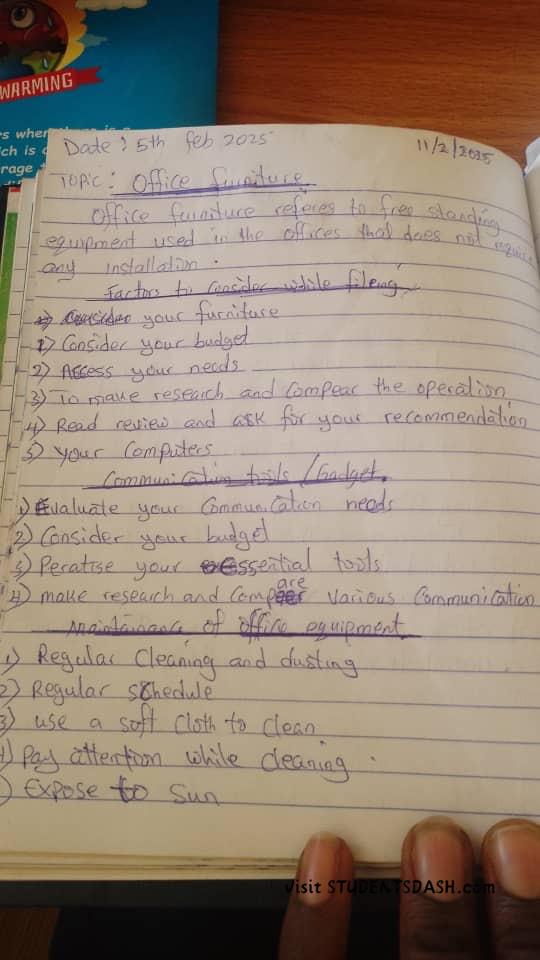 WARMING
s when
ch is
rage
Date: 5th feb 2025
11/2/2025
TOPIC: Office furniture
Office furniture referes to free standing
equipment used in the offices that does not require
any installation.
Factors to Consider while fileing
your furniture
1) Consider your budget
2) Access your needs
3) To make research and Compear the operation
4) Read review and ask for your recommendation
5) your Computers
Communication tools / Gadget.
1) Evaluate your Communication needs
2) Consider your budget
3) Peratise your essential tools
4) make research and Compare various Communication
Maintainance of office equipment
1) Regular Cleaning and dusting
2) Regular schedule
3) use a soft Cloth to clean
4) Pay attention while cleaning.
) Expose to Sun
visit STUDENTSDASH.com